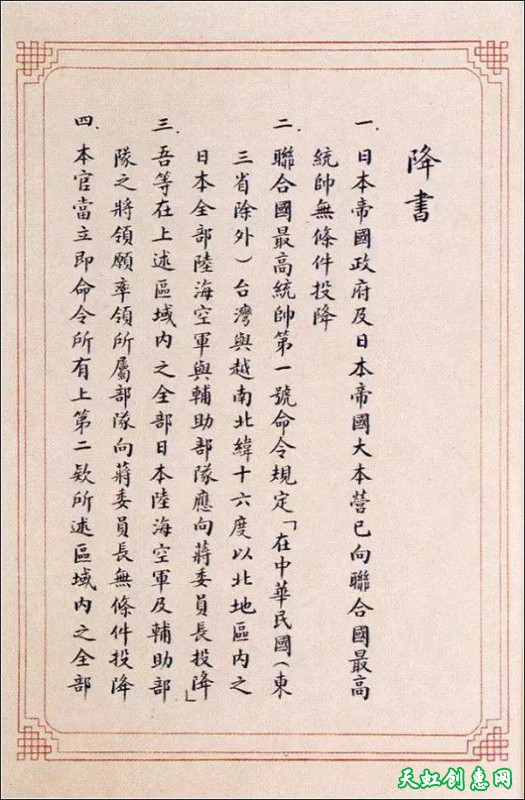 降書
一．日本帝國政府及日本帝國大本營已向聯合國最高
統帥無條件投降
二．聯合國最高統帥第一號命令規定「在中華民國（東
三省除外）台灣與越南北緯十六度以北地區內之
日本全部陸海空軍與輔助部隊應向蔣委員長投降」
三．吾等在上述區域內之全部日本陸海空軍及輔助部
隊之將領願率領所屬部隊向蔣委員長無條件投降
四．本官當立即命令所有上第二欵所述區域內之全部
天虹创惠网